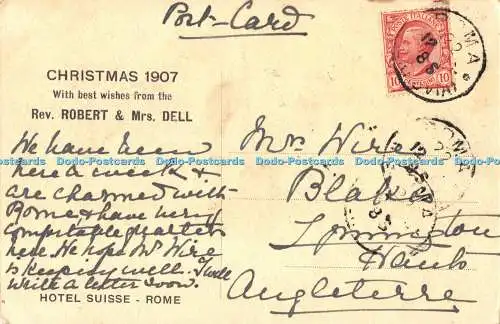 Post-Card
POSTE ITALIANE
10 10
ROMA
CHRISTMAS 1907
With best wishes from the
Rev. ROBERT & Mrs. DELL
We have been
here a week &
are charmed with
Rome, & have very
comfortable quarters
here. We hope Mr Wire
is keeping well. I will
write a letter soon.
HOTEL SUISSE - ROME
Mrs Wire
Blake
Lymington
Hants
Angleterre
Dodo-Postcards Dodo-Postcards Dodo-Postcards Dodo-Postcards Dodo-Postcards Dodo-Postcards